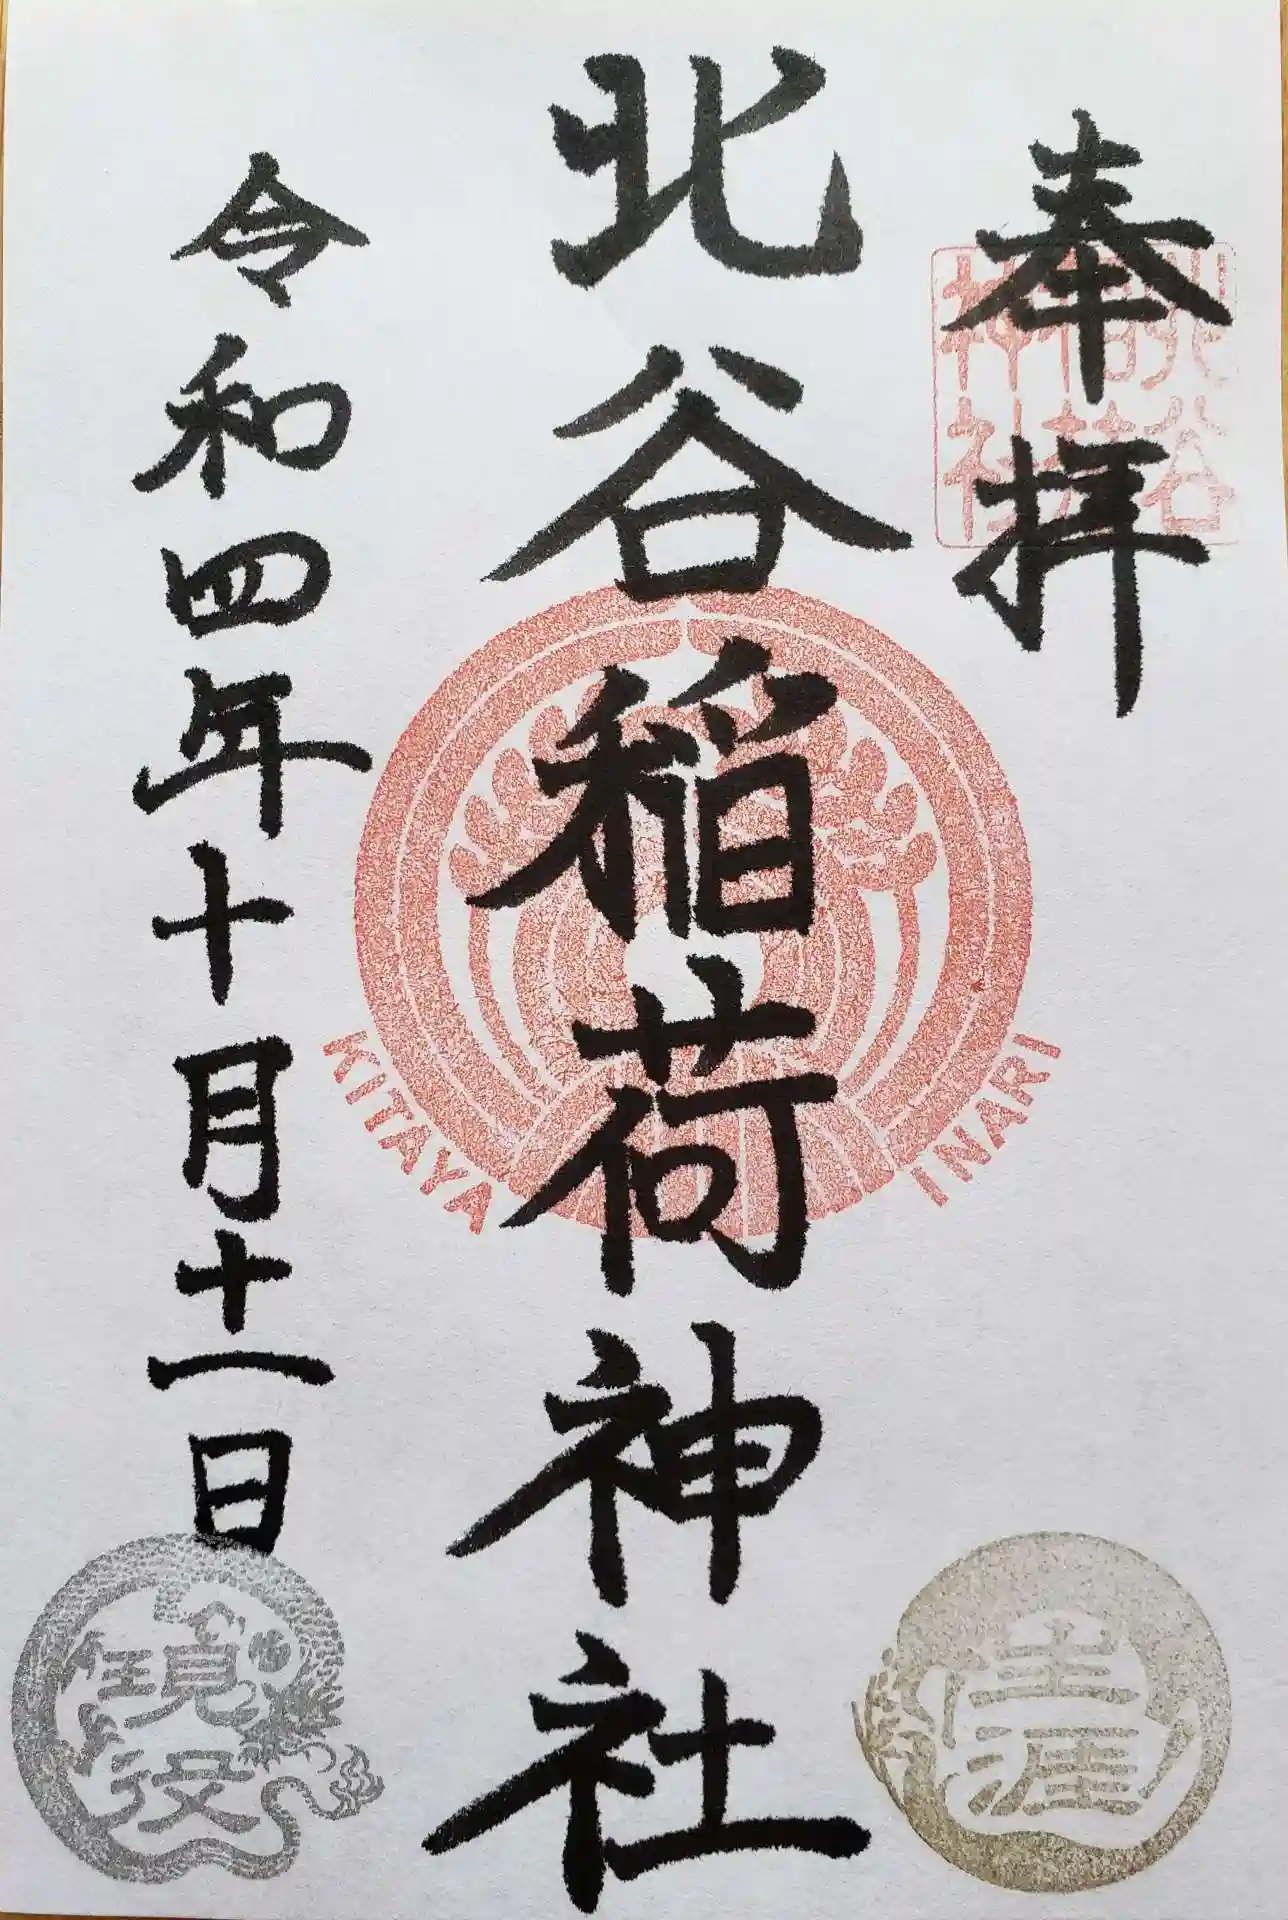 奉拝
北谷稲荷神社
北谷稲荷神社
令和四年十月十一日
KITAYA INARI
生涯
現役